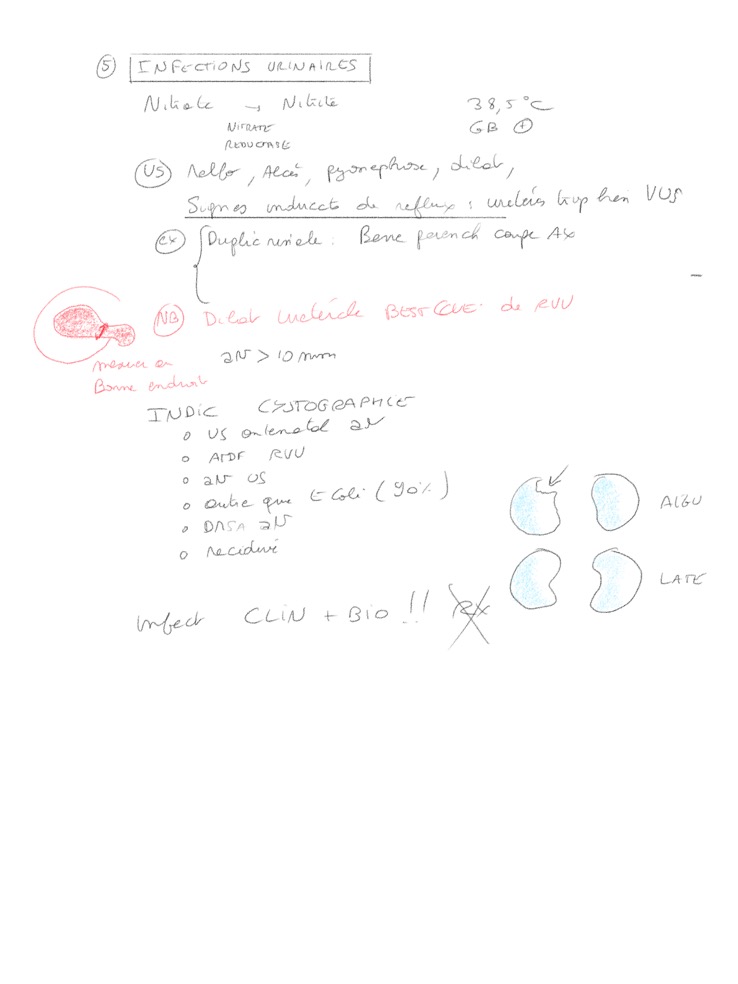 ⑤ INFECTIONS URINAIRES
Nitrate → Nitrite 38,5°C
NITRATE GB ⊕
REDUCTASE
US Abcès, pyonephrose, dilat,
Signes indirects de reflux : uretères trop bien VUS
ex Duplic rénale : Barre parench coupe Ax
NB Dilat uretérale de RVU
mesurer au aN > 10 mm
Bonne endroit
INDIC CYSTOGRAPHIE
o US antenatal aN
o ATDF RVU
o aN US
o autre que E Coli (90%)
o DMSA aN
o recidive
AIGU
LATE
Infect CLIN + BIO !! ex